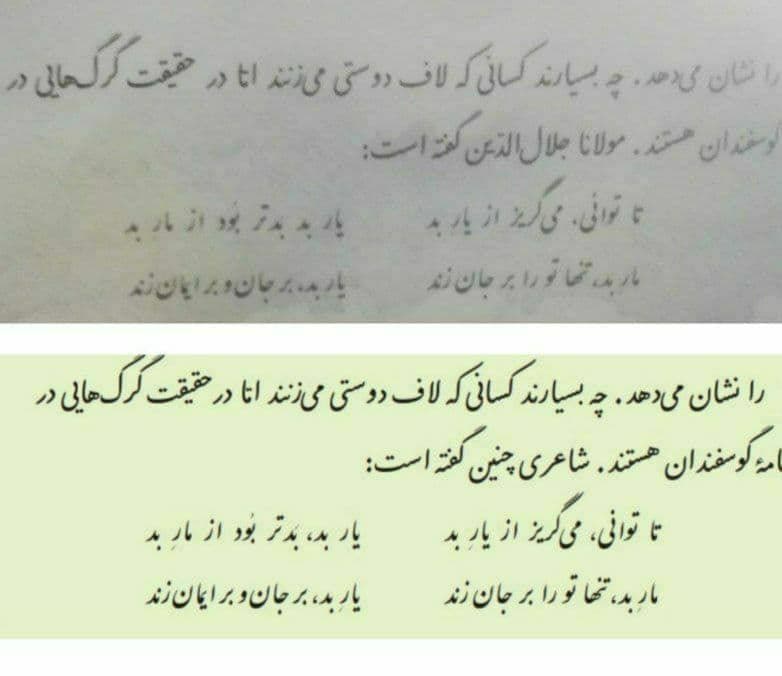 را نشان می‌دهد. چه بسیارند کسانی که لاف دوستی می‌زنند اتا در حقیقت گرگ‌هایی در
گوسفندان هستند. مولانا جلال‌الدّین گفته است:
تا توانی، می‌گریز از یار بد یار بد بدتر بُود از مار بد
مار بد، تنها تو را بر جان زند یار بد، بر جان و بر ایمان زند
را نشان می‌دهد. چه بسیارند کسانی که لاف دوستی می‌زنند امّا در حقیقت گرگ‌هایی در
گوسفندان هستند. شاعری چنین گفته است:
تا توانی، می‌گریز از یارِ بد یار بد، بَدتر بُود از مارِ بد
مارِ بد، تنها تو را بر جان زند یارِ بد، بر جان و بر ایمان زند